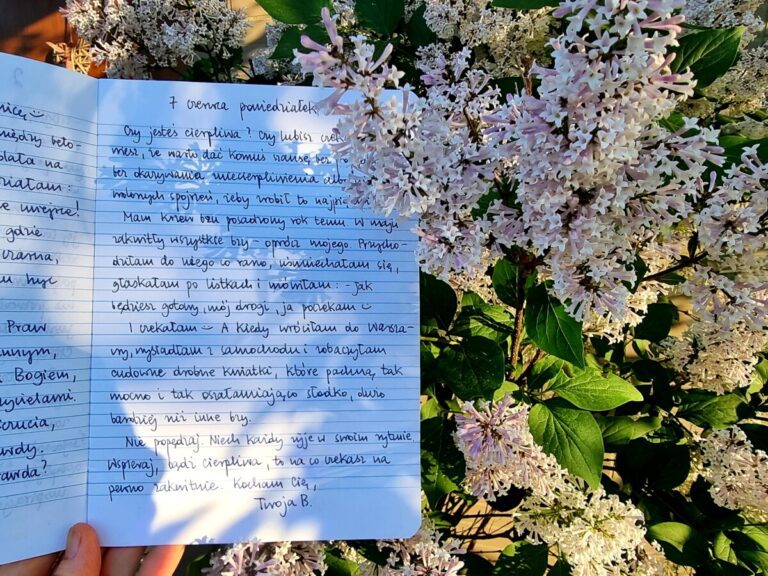 między beto-
gdzie
Praw
Bogiem,
7 czerwca poniedziałek
Czy jesteś cierpliwa? Czy lubisz
że warto dać komuś szansę, bez
bez okazywania zniecierpliwienia
spojrzeń, żeby zrobił to
Mam krzew bzu posadzony rok temu. W maju
zakwitły wszystkie bzy - oprócz mojego. Przycho-
dziłam do niego co rano, uśmiechałam się,
głaskałam po listkach i mówiłam: - jak
będziesz gotowy, mój drogi, ja poczekam
I czekałam A kiedy wróciłam do Warsza-
wy, wysiadłam z samochodu i zobaczyłam
cudowne drobne kwiatki, które pachną tak
mocno i tak oszałamiająco słodko, dużo
bardziej niż inne bzy.
Nie popędzaj. Niech każdy żyje w swoim rytmie.
Wspieraj, bądź cierpliwa, to na co czekasz na
pewno zakwitnie. Kocham Cię,
Twoja B.